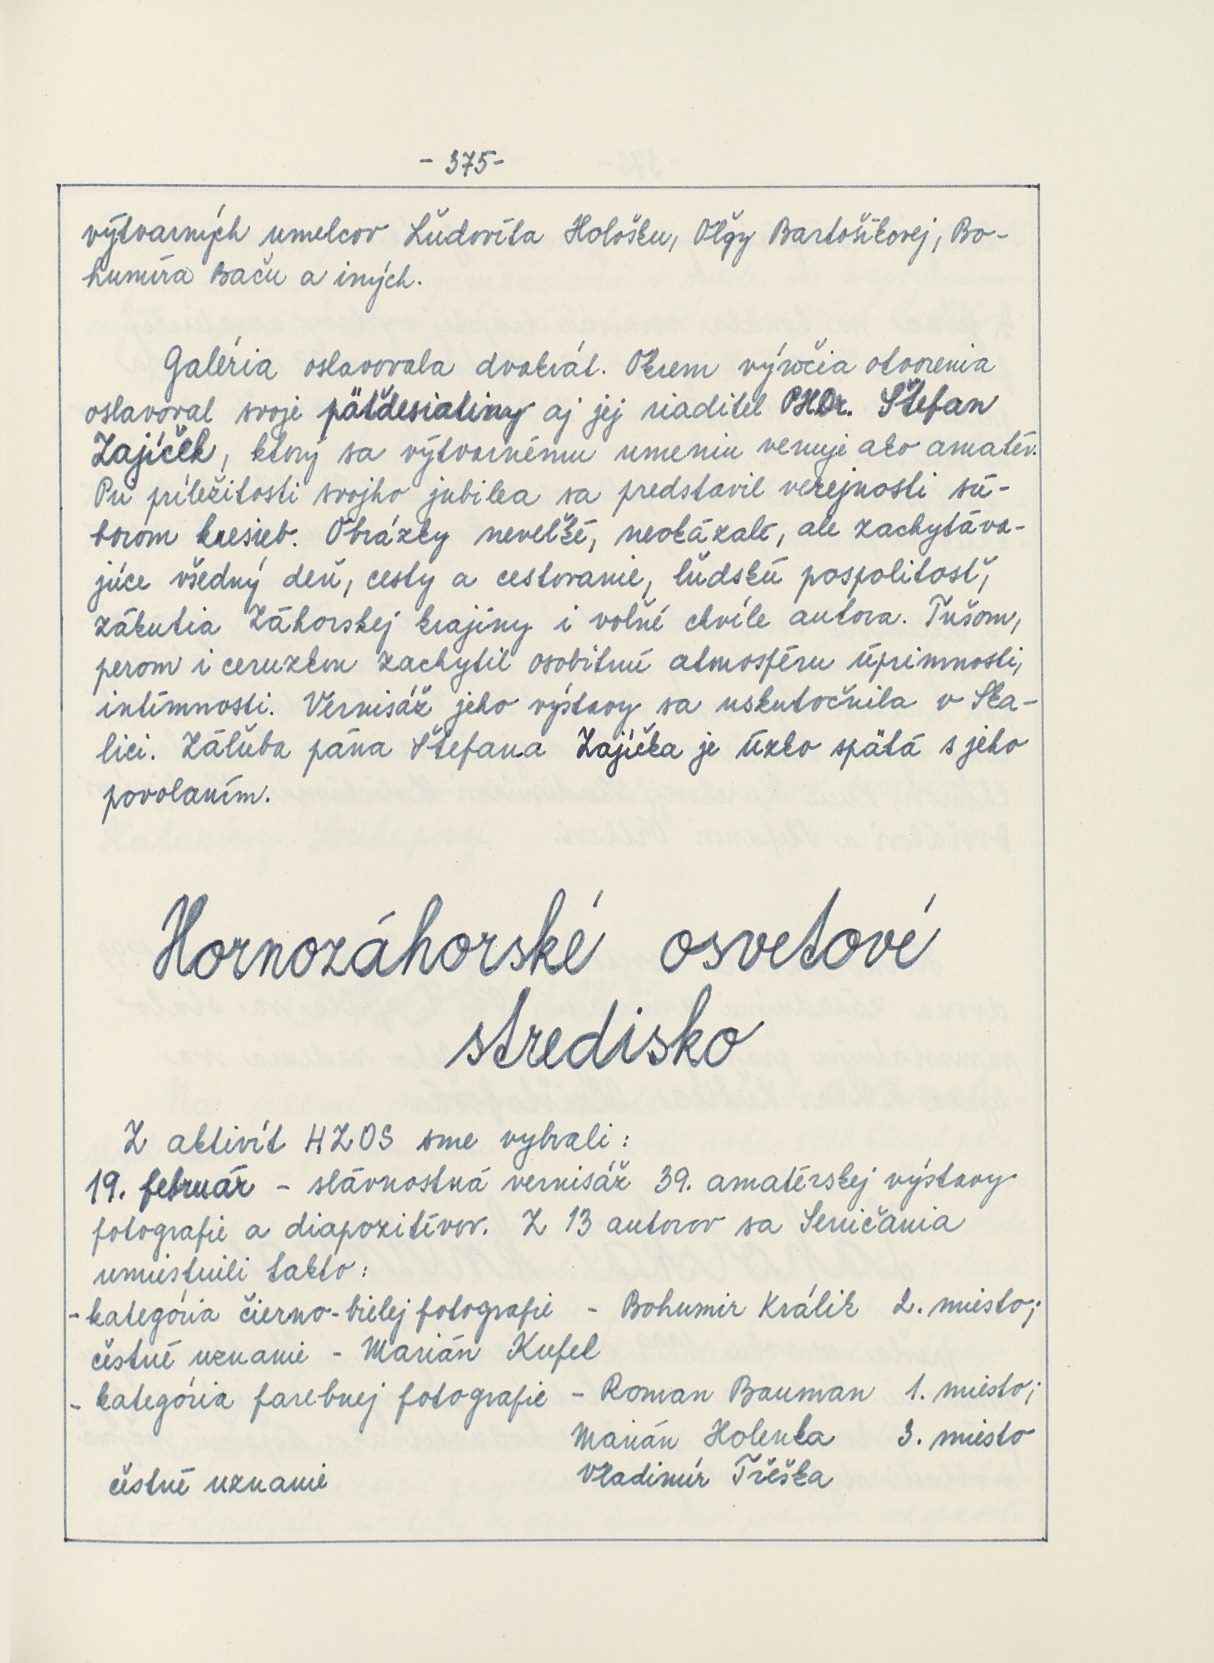 - 375 -
výtvarných umelcov Ľudovíta Hološku, Oľgy Bartošíkovej, Bo-
humíra Baču a iných.
Galéria oslavovala dvakrát. Okrem výročia otvorenia
oslavoval svoje päťdesiatiny aj jej riaditeľ PHDr. Štefan
Zajíček, ktorý sa výtvarnému umeniu venuje ako amatér.
Pri príležitosti svojho jubilea sa predstavil verejnosti sú-
borom kresieb. Obrázky neveľké, neokázalé, ale zachytáva-
júce všedný deň, cesty a cestovanie, ľudskú pospolitosť,
zákutia Záhorskej krajiny i voľné chvíle autora. Tušom,
perom i ceruzkou zachytil osobitnú atmosféru úprimnosti,
intímnosti. Vernisáž jeho výstavy sa uskutočnila v Ska-
lici. Záľuba pána Štefana Zajíčka je úzko spätá s jeho
povolaním.
Hornozáhorské osvetové
stredisko
Z aktivít HZOS sme vybrali:
19. február - slávnostná vernisáž 39. amatérskej výstavy
fotografie a diapozitívov. Z 13 autorov sa Seničania
umiestnili takto:
- kategória čierno-bielej fotografie - Bohumír Králik 2. miesto;
čestné uznanie - Marián Kufel
- kategória farebnej fotografie - Roman Bauman 1. miesto;
Marián Holenka 3. miesto
čestné uznanie Vladimír Třeška